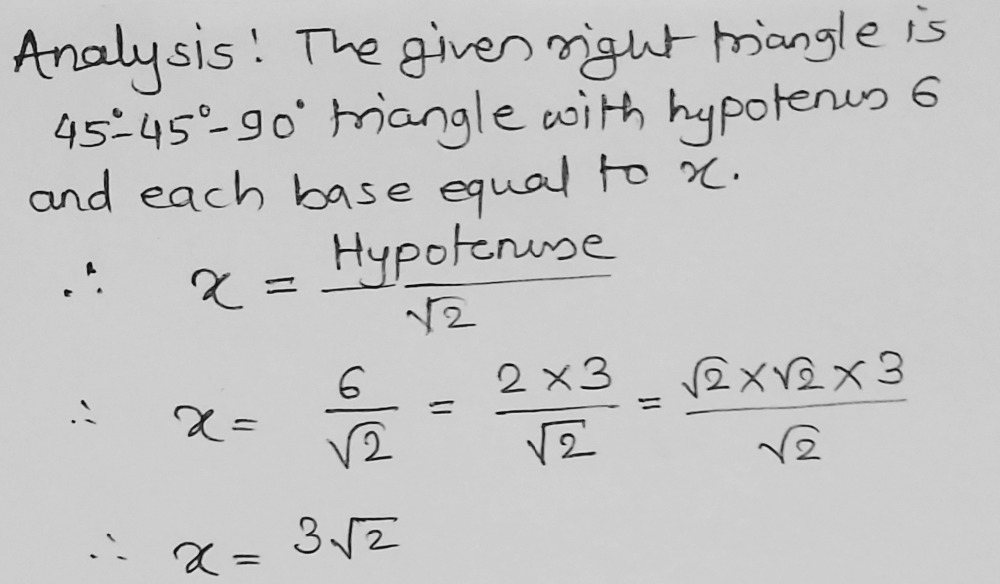 Analysis: The given right triangle is
45°-45°-90° triangle with hypotenus 6
and each base equal to x.
∴ x = Hypotenuse / √2
∴ x = 6/√2 = 2×3/√2 = √2×√2×3/√2
∴ x = 3√2